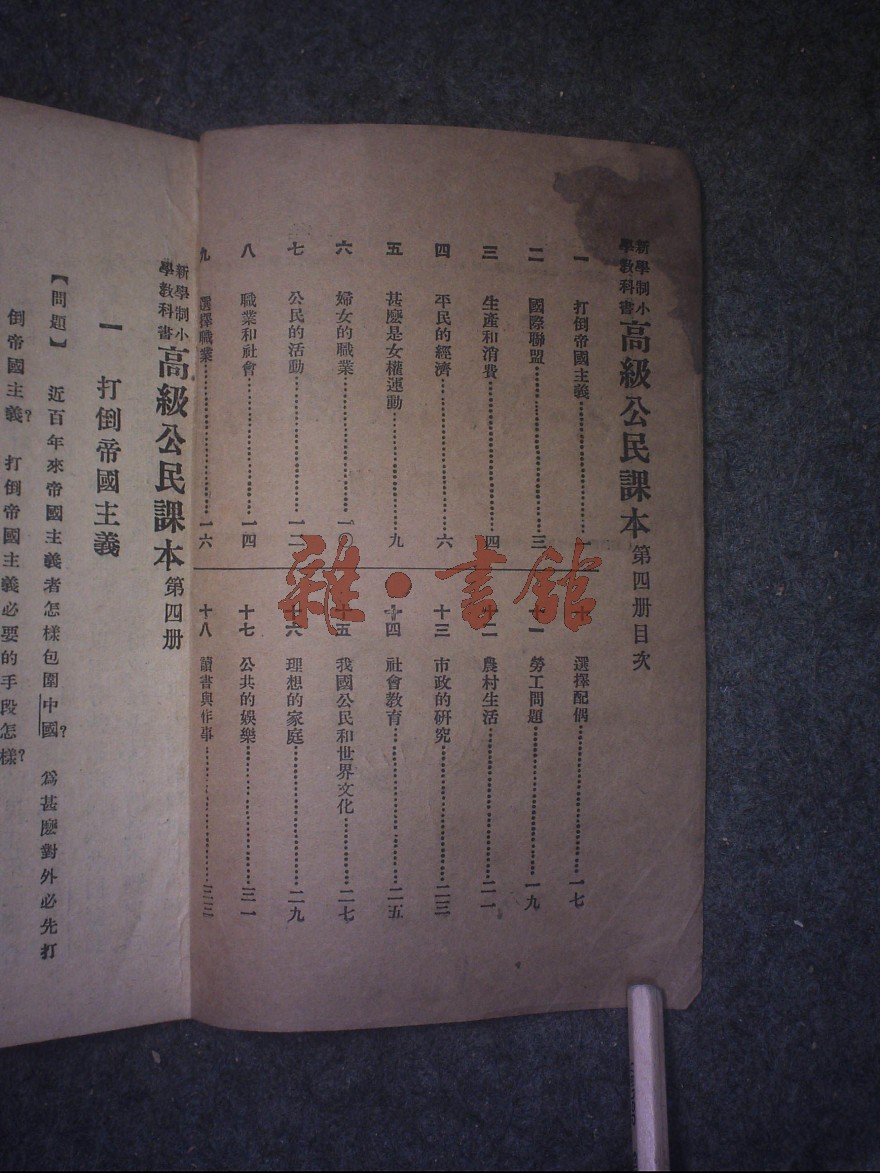 新學制小
學教科書
高級公民課本 第四册目次
一 打倒帝國主義 一
二 國際聯盟 三
三 生產和消費 四
四 平民的經濟 六
五 甚麽是女權運動 九
六 婦女的職業 一〇
七 公民的活動 一二
八 職業和社會 一四
九 選擇職業 一六
十 選擇配偶 一七
十一 勞工問題 一九
十二 農村生活 二一
十三 市政的研究 二三
十四 社會教育 二五
十五 我國公民和世界文化 二七
十六 理想的家庭 二九
十七 公共的娛樂 三一
十八 讀書與作事 三三
雜·書館
新學制小
學教科書
高級公民課本 第四册
一 打倒帝國主義
【問題】 近百年來帝國主義者怎樣包圍中國? 爲甚麽對外必先打
倒帝國主義? 打倒帝國主義必要的手段怎樣?